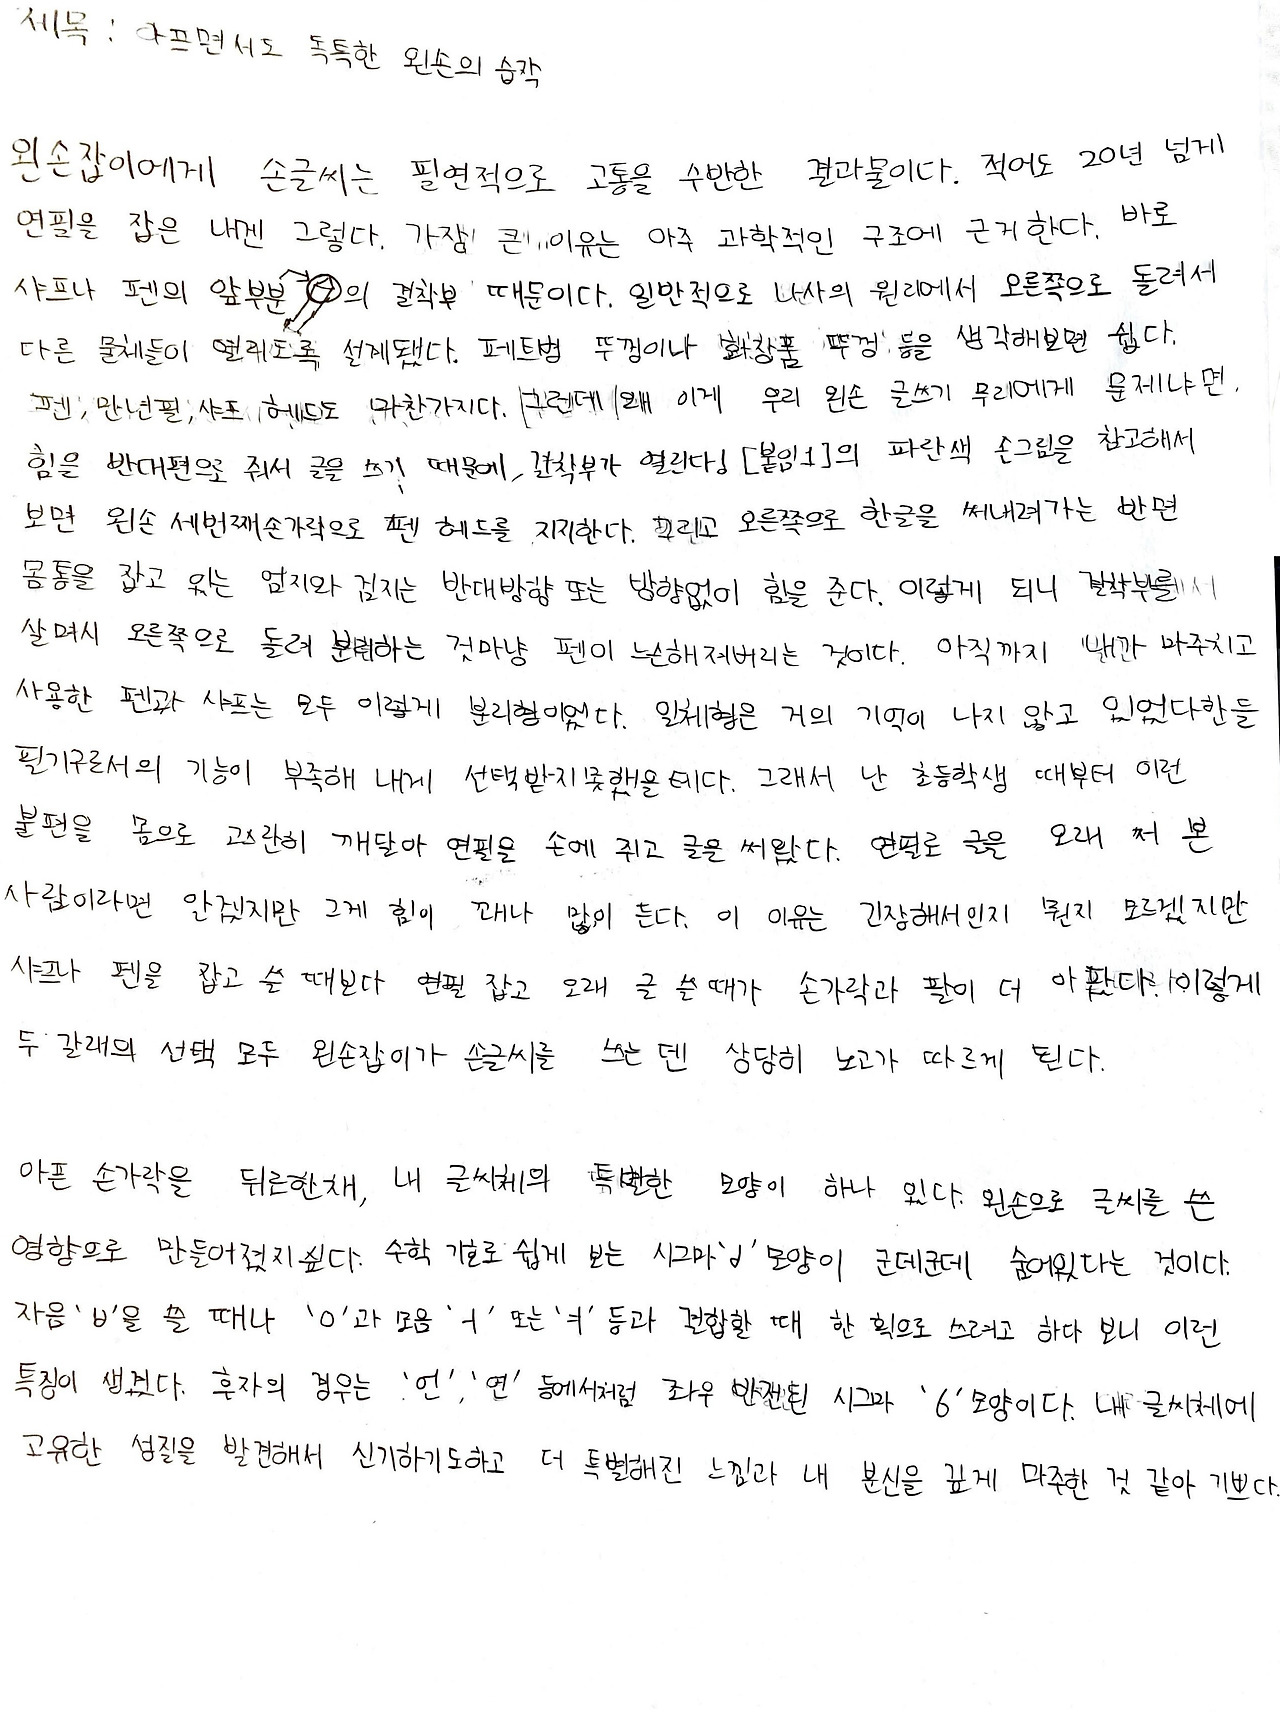 제목 : 아프면서도 독특한 왼손의 습작
왼손잡이에게 손글씨는 필연적으로 고통을 수반한 결과물이다. 적어도 20년 넘게
연필을 잡은 내겐 그렇다. 가장 큰 이유는 아주 과학적인 구조에 근거한다. 바로
샤프나 펜의 앞부분의 결착부 때문이다. 일반적으로 나사의 원리에서 오른쪽으로 돌려서
다른 물체들이 열리도록 설계됐다. 페트병 뚜껑이나 화장품 뚜껑 등을 생각해보면 쉽다.
펜, 만년필, 샤프 헤드도 마찬가지다. 그런데 왜 이게 우리 왼손 글쓰기 무리에게 문제냐면,
힘을 반대편으로 줘서 글을 쓰기 때문에, 결착부가 열린다! [붙임1]의 파란색 손그림을 참고해서
보면 왼손 세번째손가락으로 펜 헤드를 지지한다. 그리고 오른쪽으로 한글을 써내려가는 반면
몸통을 잡고 있는 엄지와 검지는 반대방향 또는 방향없이 힘을 준다. 이렇게 되니 결착부를
살며시 오른쪽으로 돌려 분리하는 것마냥 펜이 느슨해져버리는 것이다. 아직까지 내가 마주치고
사용한 펜과 샤프는 모두 이렇게 분리형이었다. 일체형은 거의 기억이 나지 않고 있었다한들
필기구로서의 기능이 부족해 내게 선택받지못했을테다. 그래서 난 초등학생 때부터 이런
불편을 몸으로 고스란히 깨달아 연필을 손에 쥐고 글을 써왔다. 연필로 글을 오래 써 본
사람이라면 알겠지만 그게 힘이 꽤나 많이 든다. 이 이유는 긴장해서인지 뭔지 모르겠지만
샤프나 펜을 잡고 쓸 때보다 연필 잡고 오래 글 쓸 때가 손가락과 팔이 더 아팠다. 이렇게
두 갈래의 선택 모두 왼손잡이가 손글씨를 쓰는 덴 상당히 노고가 따르게 된다.
아픈 손가락을 뒤로한채, 내 글씨체의 특별한 모양이 하나 있다. 왼손으로 글씨를 쓴
영향으로 만들어졌지싶다. 수학 기호로 쉽게 보는 시그마 '৬' 모양이 군데군데 숨어있다는 것이다.
자음 'ㅂ'을 쓸 때나 'ㅇ'과 모음 'ㅓ' 또는 'ㅕ' 등과 결합할 때 한 획으로 쓰려고 하다 보니 이런
특징이 생겼다. 후자의 경우는 '언', '연' 등에서처럼 좌우 반전된 시그마 '6' 모양이다. 내 글씨체에
고유한 성질을 발견해서 신기하기도하고 더 특별해진 느낌과 내 분신을 깊게 마주한 것 같아 기쁘다.